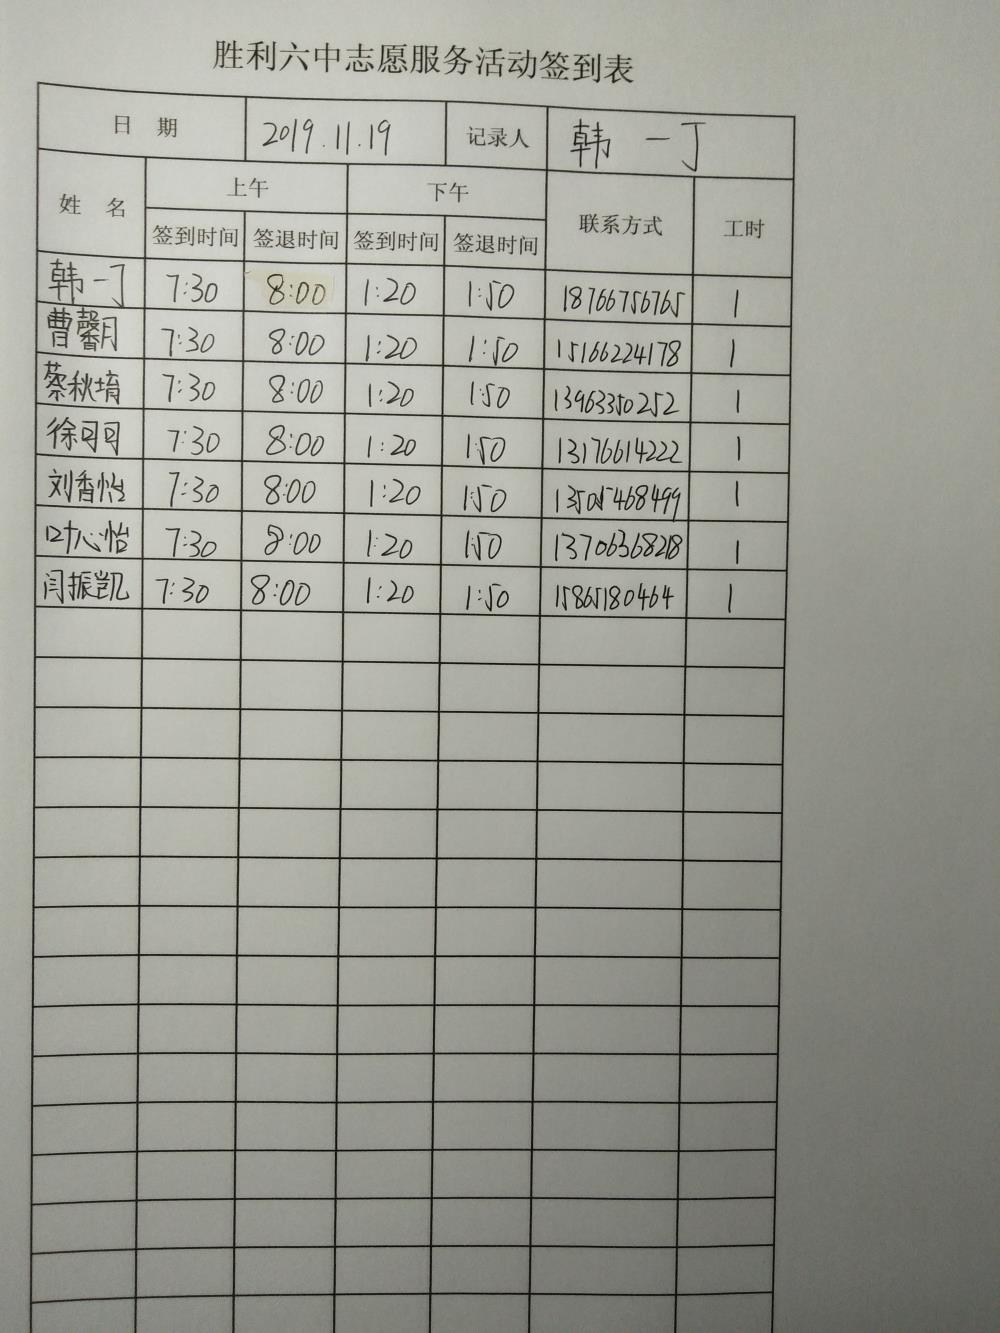 胜利六中志愿服务活动签到表
日 期 2019.11.19 记录人 韩一丁
姓 名 上午 下午 联系方式 工时
签到时间 签退时间 签到时间 签退时间
韩一丁 7:30 8:00 1:20 1:50 18766756765 1
曹馨月 7:30 8:00 1:20 1:50 15166224178 1
蔡秋堉 7:30 8:00 1:20 1:50 13963350252 1
徐可可 7:30 8:00 1:20 1:50 13176614222 1
刘香怡 7:30 8:00 1:20 1:50 13505468499 1
叶心怡 7:30 8:00 1:20 1:50 1
闫振凯 7:30 8:00 1:20 1:50 15865180464 1